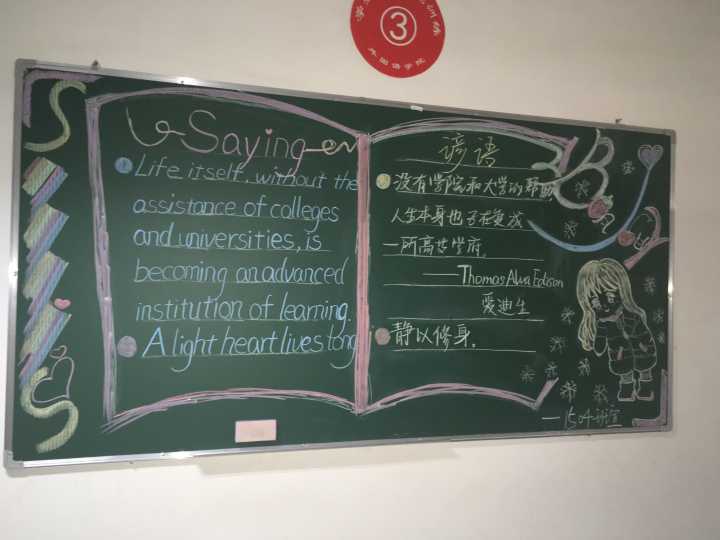 ③
外国语学院
Saying
Life itself, without the
assistance of colleges
and universities, is
becoming an advanced
institution of learning.
A light heart lives long
谚语
没有学院和大学的帮助
人生本身也正在变成
一所高等学府.
——Thomas Alva Edison
爱迪生
静以修身.